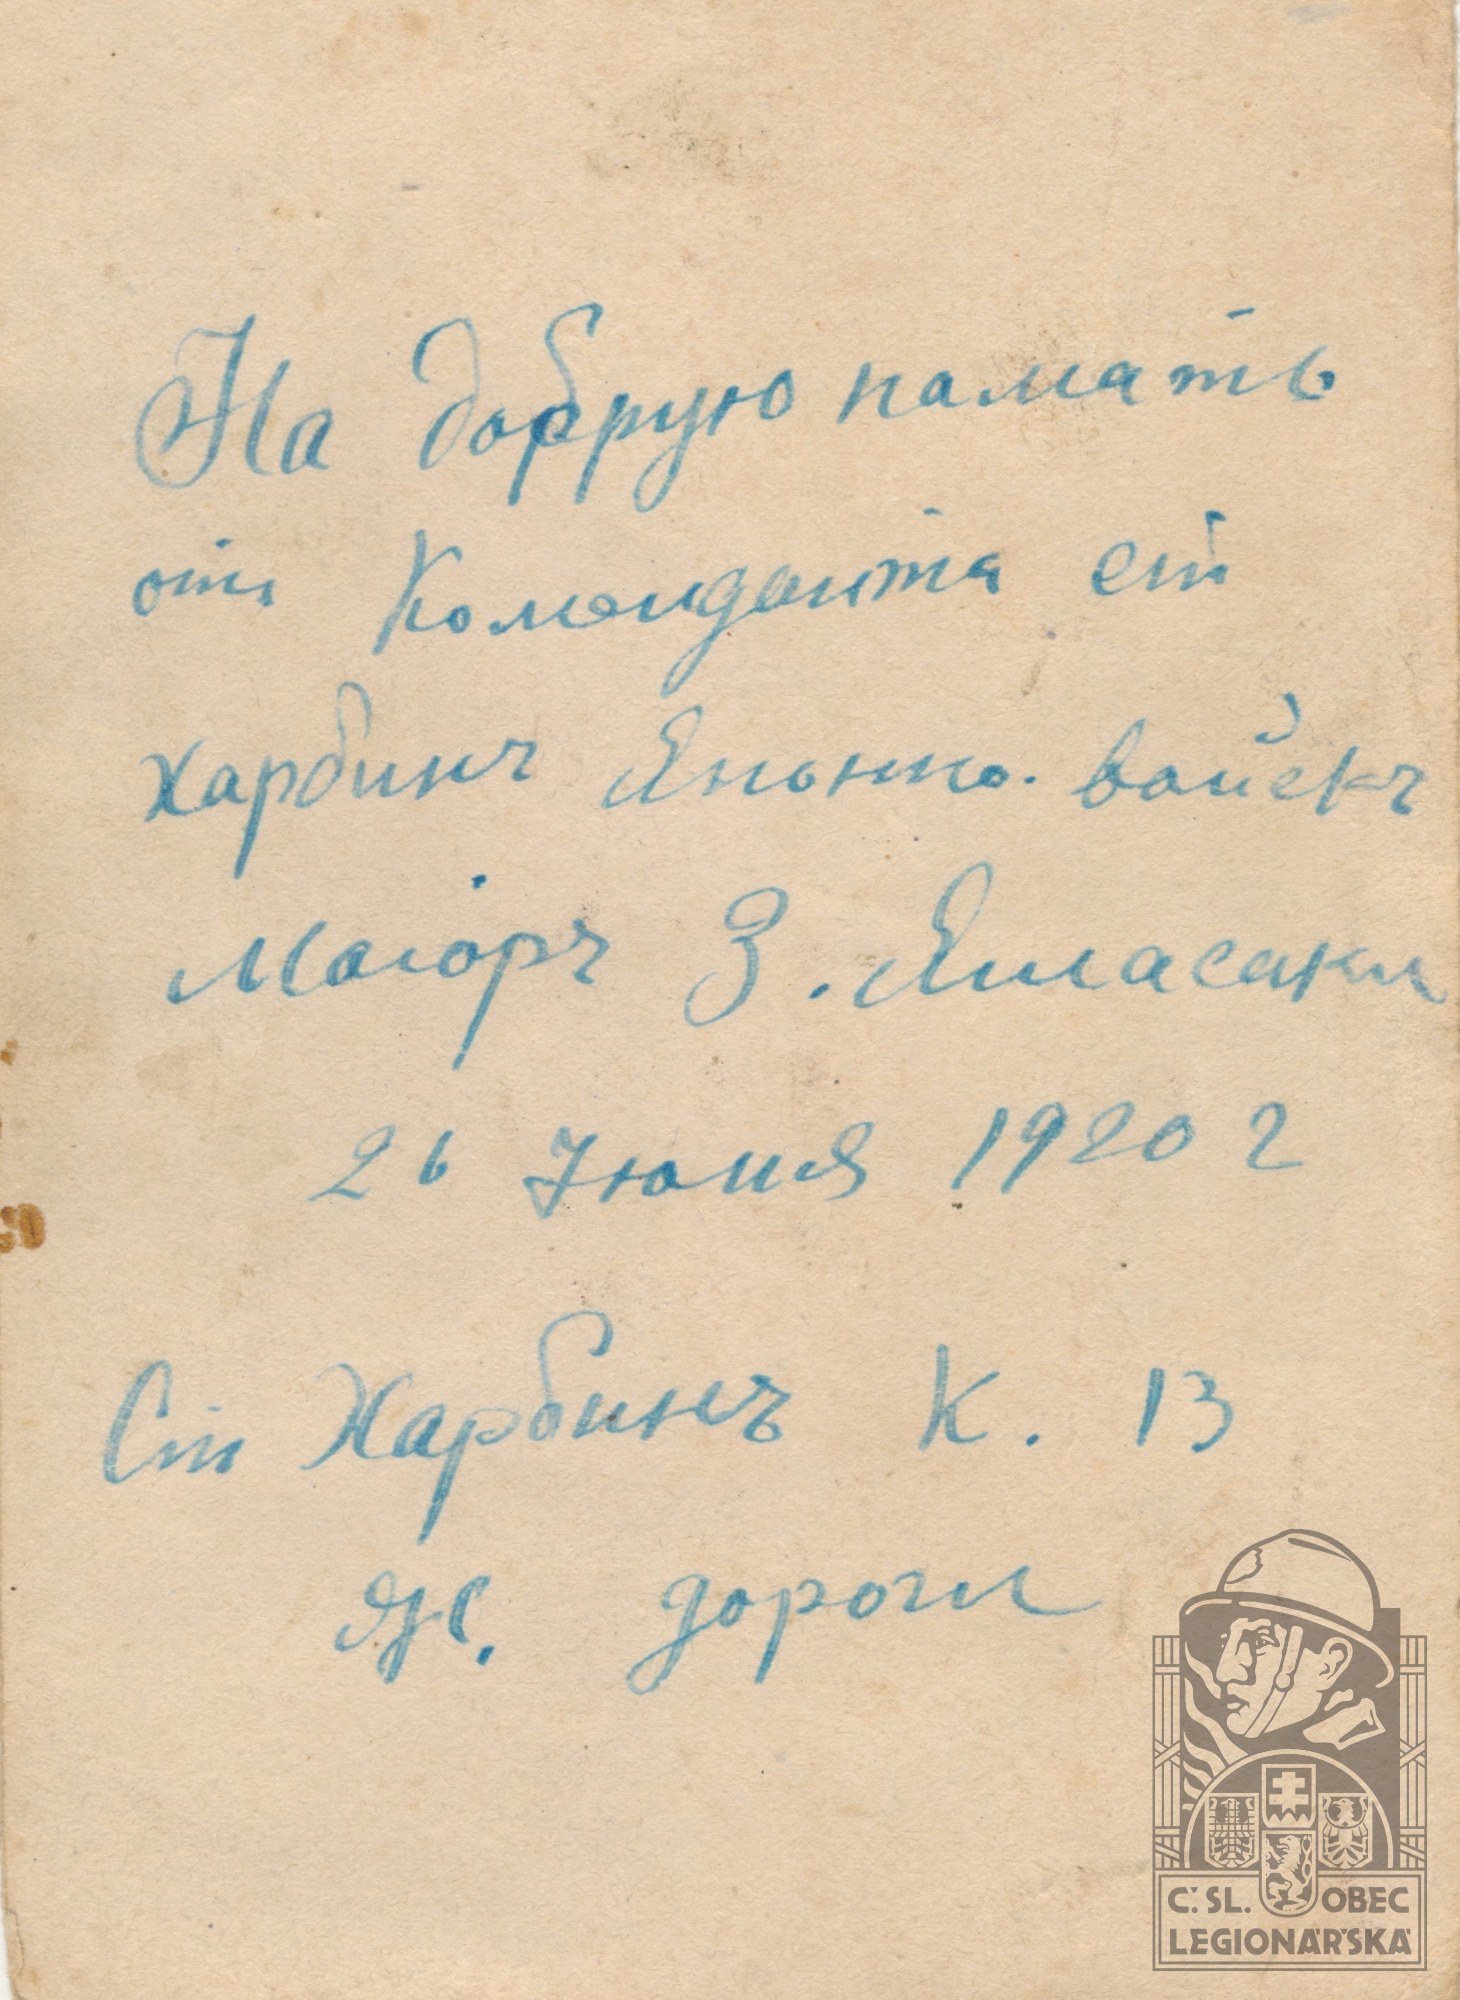 На добрую память
отъ Коменданта ст
Харбинъ Японск. войскъ
Маіоръ З. Ямасаки
26 Іюня 1920 г
Ст Харбинъ К. 13
дороги
Č. SL. OBEC
LEGIONÁŘSKÁ